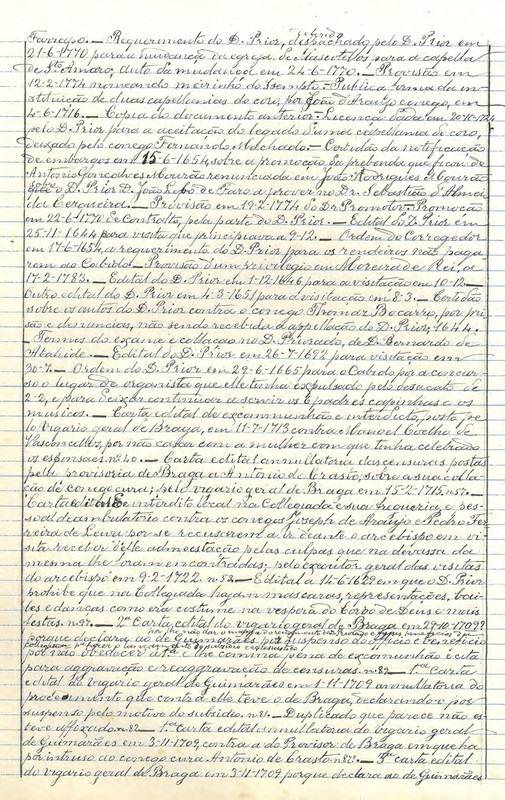 Farrapo. — Requerimento do D. Prior, despachado pelo D. Prior em
21-6-1770 para a mudança da egreja de Mascotellos para a capella
de Sto Amaro, auto da mudança, em 24-6-1770. — Provisão em
12-2-1774 nomeando meirinho do Isempto. — Publica forma da in-
stituição de duas capellanias do coro, por João d'Araujo conego, em
4-6-1716. — Copia do documento anterior. — Licença dada em 20-10-1724
pelo D. Prior para a aceitação do legado d'uma capellania de coro,
deixado pelo conego Fernando Machado. — Certidão da notificação
de embargos em 15-6-1654, sobre a promoção da prebenda que ficou de
Antonio Gonçalves Mourão renunciada em João Rodrigues Mourão
o D. Prior D. João Lobo de Faro a prover no Dr. Sebastião d'Almei
da Cerqueira. — Provisão em 19-2-1774 do Dr. Promotor. — Promoção
em 22-6-1770 e Contralta, pela parte do D. Prior. — Edital do D. Prior em
25-11-1644 para visita que principiava a 9-12. — Ordem do Corregedor
em 17-6-1654, a requerimento do D. Prior para os rendeiros não paga-
rem ao Cabido. — Provisão d'um privilegio em Moreira de Rei, a
17-2-1783. — Edital do D. Prior em 1-12-1646 para a visitação em 10-12. —
Outro edital do D. Prior em 4-3-1651 para a visitação em 8-3. — Certidão
sobre os autos do D. Prior contra o conego Thomaz Bocarro, por pri-
são e denuncias, não sendo recebida a appellação do D. Prior, 1644. —
Termos do exame e collação no D. Priorado, de D. Bernardo de
Athaide. — Edital do D. Prior em 26-7-1692 para visitação em
30-7. — Ordem do D. Prior em 29-6-1665 para o Cabido pôr a concur-
so o lugar de organista que elle tinha expulsado pelo desacato de
2-2, e para deixar continuar a servir os padres capinhas e os
musicos. — Carta edital de excommunhão e interdicto, posto pe-
lo vigario geral de Braga, em 11-7-1713 contra Manoel Coelho de
Vasconcellos, por não casar com a mulher com que tinha celebrado
os esponsaes. nº 40. — Carta edital annullatoria das censuras postas
pelo provisoria de Braga a Antonio de Crasto, sobre a sua colla-
ção de conego cura; pelo vigario geral de Braga em 15-2-1715. nº 57. —
Carta edital de interdicto local na Collegiada e sua freguezia e pes-
soal deambulatorio contra os conegos Joseph de Araujo e Pedro Fer-
reira de Leiva por se recusarem a ir deante o arcebispo em vi-
sita receber d'elle admoestação pelas culpas que na devassa da
mesma lhe foram encontradas; pelo executor geral das visitas
do arcebispo em 9-2-1722. nº 52. — Edital a 14-6-1629 em que o D. Prior
prohibe que na Collegiada hajam mascaras, representações, bai-
les e danças como era costume na vespera do Corpo de Deus e mais
festas. nº 27. — 2ª Carta edital do vigario geral de Braga em 29-10-1709
porque declara ao de Guimarães por suspenso do officio e beneficio
por não obedecer á 1ª e lhe commina pena de excommunhão e cita
para aggravação e reaggravação de censuras. nº 82. — 1ª Carta
edital do vigario geral de Guimarães em 1-11-1709 annullatoria do
procedimento que contra elle teve o de Braga, declarando-o por
suspenso pelo motivo do subsidio. nº 81. — Duplicado que parece não es-
teve affixado. nº 82. — 1ª Carta edital annullatoria do vigario geral
de Guimarães em 3-11-1709, contra a do Provisor de Braga em que ha
por intruso ao conego cura Antonio de Crasto. nº 83. — 3ª carta edital
do vigario geral de Braga em 5-11-1709 porque declara ao de Guimarães